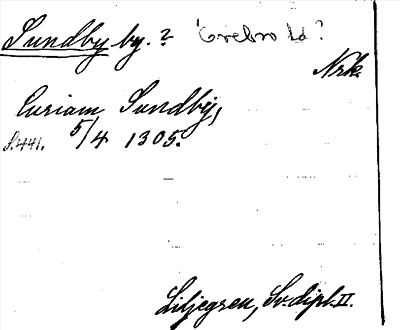 Sundby by. ? Örebro ld?
Nrk.
Curiam Sundby,
S. 441. 5/4 1305.
Liljegren, Sv. dipl. II.